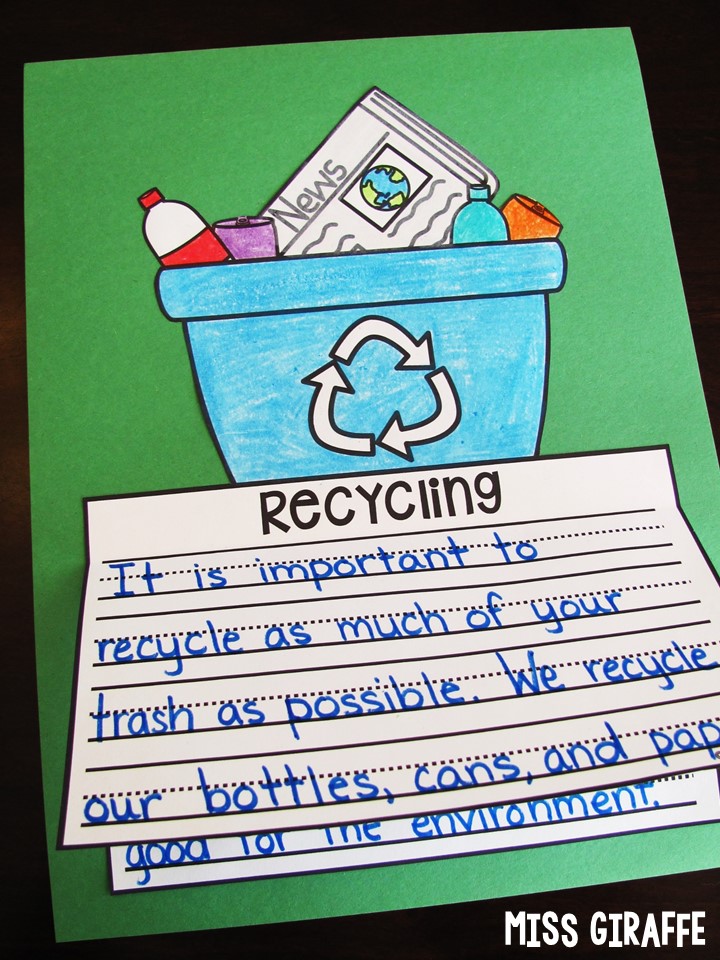 News
Recycling
It is important to
recycle as much of your
trash as possible. We recycle
our bottles, cans, and pap
good for the environment.
MISS GIRAFFE